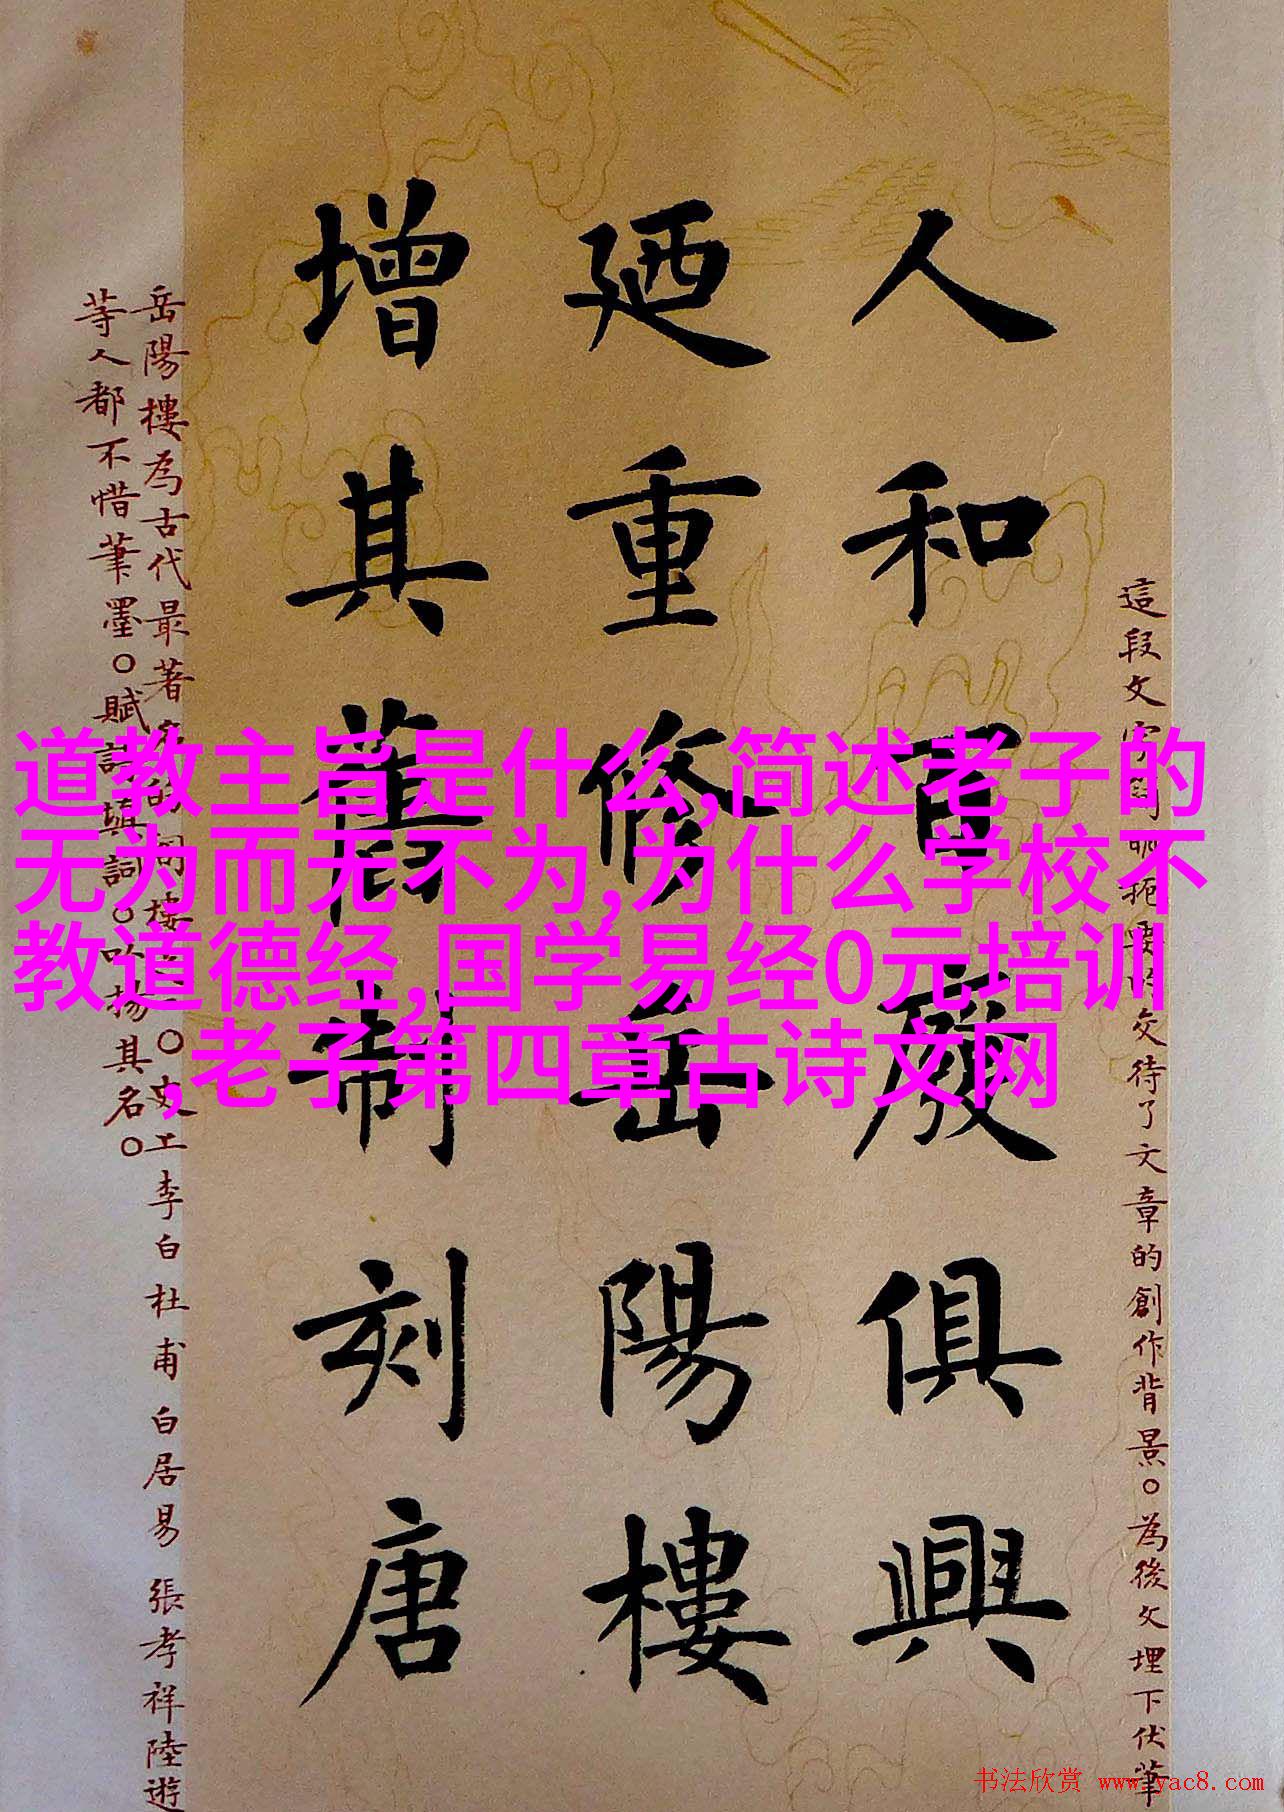 人和百廢俱興
廼重修岳陽樓
增其舊制刻唐
道教主旨是什么,简述老子的
无为而无不为,为什么学校不
教道德经,国学易经0元培训
,老子第四章古诗文网
這段文字
交待了文章的創作背景。為後文埋下伏筆
岳陽樓為古代最著名的
李白杜甫白居易張孝祥陸遊
等人都不惜筆墨。賦詩填詞。以揚其名。
书法欣赏 www.yac8.com